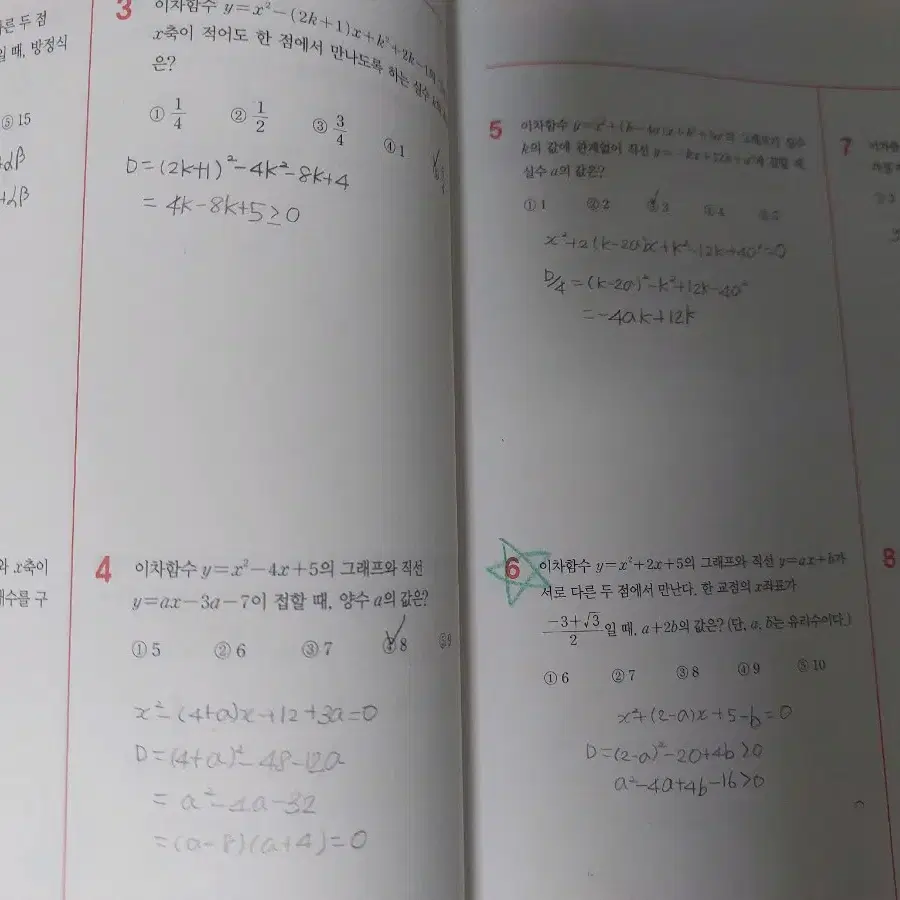 른 두 점
일 때, 방정식
⑤ 15
+αβ
+αβ
와 x축이
수를 구
3
이차함수 y=x²-(2k+1)x+k²+2k-1의
x축이 적어도 한 점에서 만나도록 하는 실수
은?
① 1/4 ② 1/2 ③ 3/4 ④ 1
D=(2k+1)²-4k²-8k+4
=4k-8k+5≥0
4
이차함수 y=x²-4x+5의 그래프와 직선
y=ax-3a-7이 접할 때, 양수 a의 값은?
① 5 ② 6 ③ 7 ④ 8 ⑤ 9
x²-(4+a)x+12+3a=0
D=(4+a)²-48-12a
=a²-4a-32
=(a-8)(a+4)=0
5
이차함수 그래프가 실수
k의 값에 관계없이 직선 접할 때,
실수 a의 값은?
① 1 ② 2 ③ 3 ④ 4 ⑤ 5
x²+2(k-2a)x+k²-12k+4a²=0
D/4=(k-2a)²-k²+12k-4a²
=-4ak+12k
6
이차함수 y=x²+2x+5의 그래프와 직선 y=ax+b가
서로 다른 두 점에서 만난다. 한 교점의 x좌표가
(-3+√3)/2 일 때, a+2b의 값은? (단, a, b는 유리수이다.)
① 6 ② 7 ③ 8 ④ 9 ⑤ 10
x²+(2-a)x+5-b=0
D=(2-a)²-20+4b>0
a²-4a+4b-16>0
7
8